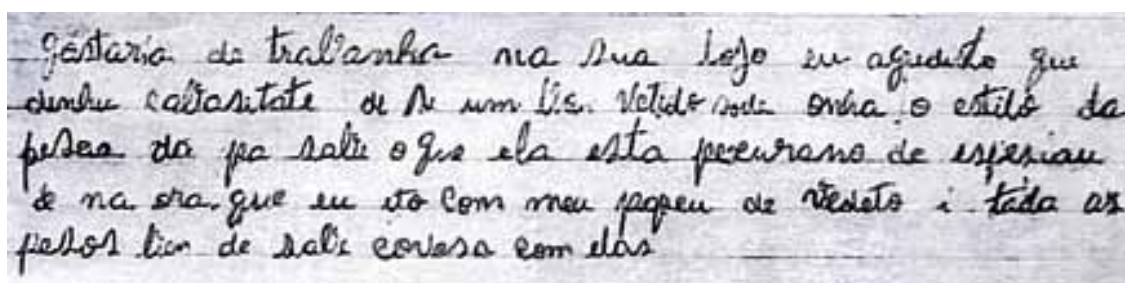 gostaria de trabanha na sua lojo eu agredito que
denhu caitasitate de se um bien vetido onha o estilo da
pesoa da pa sabe o que ela esta percurano de espesiau
é na ora que eu to com meu papeu de vedeto i tada as
pesos bien de sabe corvesa com elas